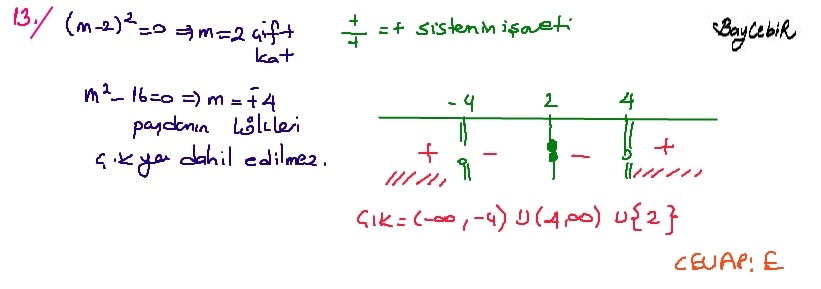 13./ (m-2)²=0 ⇒ m=2 çift
kat
+/+ = + sistemin işareti
BayCebiR
m²-16=0 ⇒ m=∓4
paydanın kökleri
Ç.K ya dahil edilmez.
-4 2 4
+ - - +
ÇıK=(-∞,-4) ∪ (4,∞) ∪ {2}
CEVAP: E